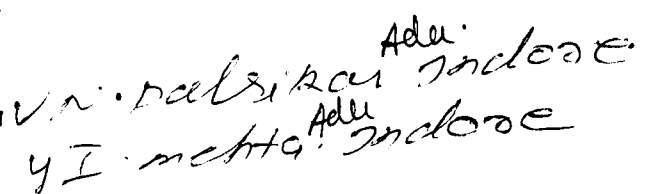 V.N. Dalsikar Adu. Indore
Y I. mehta Adu Indore